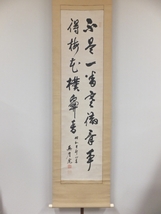 不是一番寒徹骨争
得梅花撲鼻香